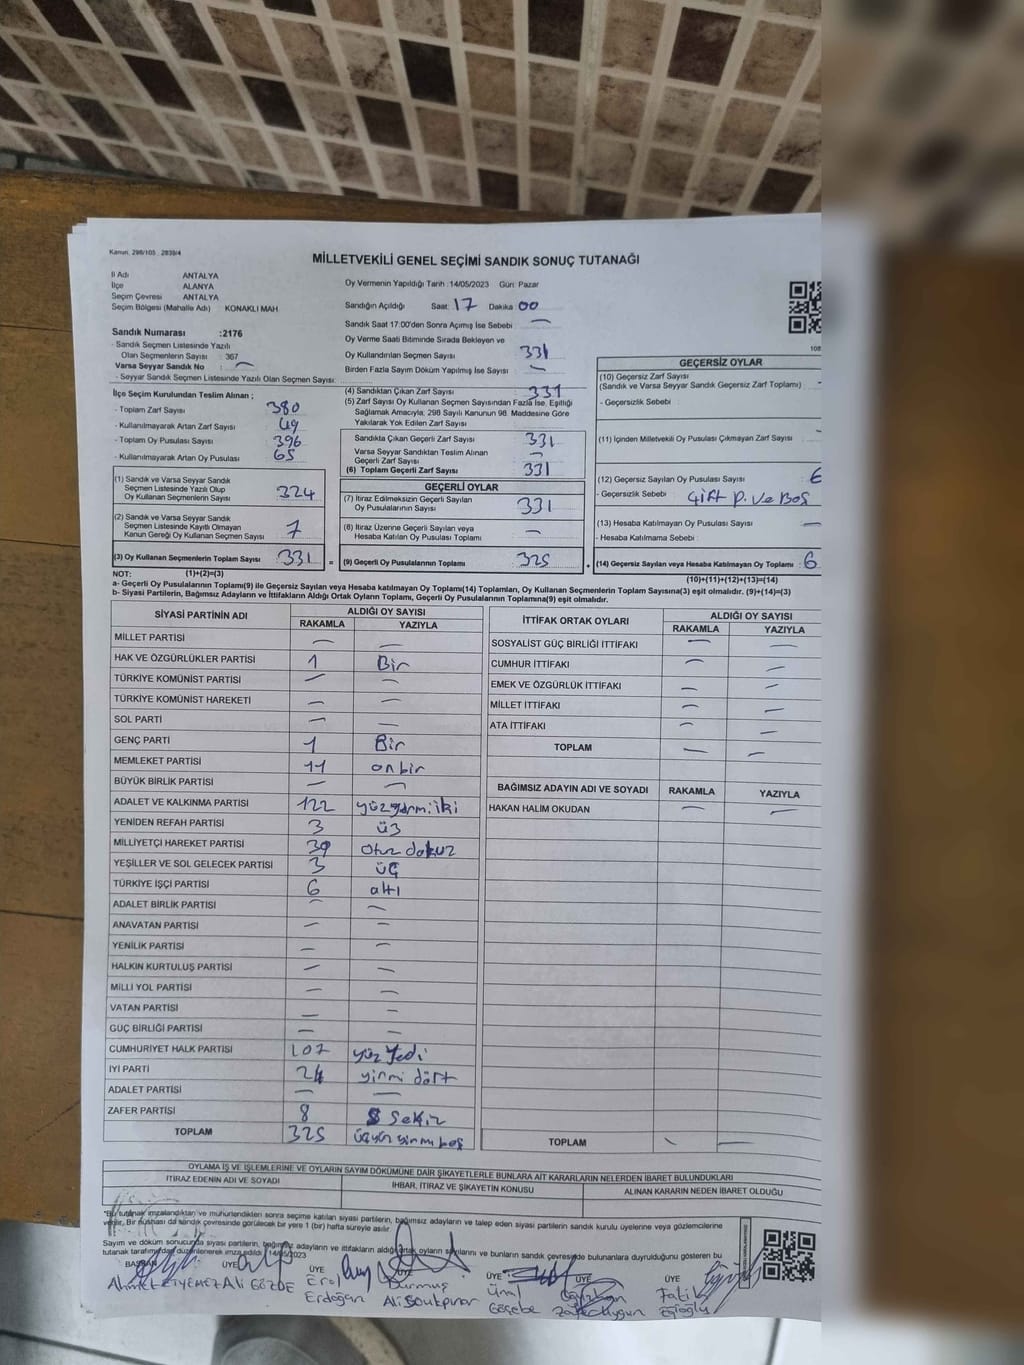 Kanun: 298/105 2839/4
MİLLETVEKİLİ GENEL SEÇİMİ SANDIK SONUÇ TUTANAĞI
İl Adı ANTALYA
İlçe ALANYA
Seçim Çevresi ANTALYA
Seçim Bölgesi (Mahalle Adı) KONAKLI MAH.
Sandık Numarası :2176
- Sandık Seçmen Listesinde Yazılı
Olan Seçmenlerin Sayısı : 367
Varsa Seyyar Sandık No : —
- Seyyar Sandık Seçmen Listesinde Yazılı Olan Seçmen Sayısı:
Oy Vermenin Yapıldığı Tarih :14/05/2023 Gün: Pazar
Sandığın Açıldığı Saat: 17 Dakika 00
Sandık Saat 17:00'den Sonra Açımış İse Sebebi : —
Oy Verme Saati Bitiminde Sırada Bekleyen ve
Oy Kullandırılan Seçmen Sayısı 331
Birden Fazla Sayım Döküm Yapılmış İse Sayısı —
İlçe Seçim Kurulundan Teslim Alınan ;
- Toplam Zarf Sayısı 380
- Kullanılmayarak Artan Zarf Sayısı 49
- Toplam Oy Pusulası Sayısı 396
- Kullanılmayarak Artan Oy Pusulası 65
(1) Sandık ve Varsa Seyyar Sandık
Seçmen Listesinde Yazılı Olup
Oy Kullanan Seçmenlerin Sayısı 324
(2) Sandık ve Varsa Seyyar Sandık
Seçmen Listesinde Kayıtlı Olmayan
Kanun Gereği Oy Kullanan Seçmen Sayısı 7
(3) Oy Kullanan Seçmenlerin Toplam Sayısı 331 =
(4) Sandıktan Çıkan Zarf Sayısı 331
(5) Zarf Sayısı Oy Kullanan Seçmen Sayısından Fazla İse, Eşitliği
Sağlamak Amacıyla, 298 Sayılı Kanunun 98. Maddesine Göre
Yakılarak Yok Edilen Zarf Sayısı:
Sandıkta Çıkan Geçerli Zarf Sayısı 331
Varsa Seyyar Sandıktan Teslim Alınan
Geçerli Zarf Sayısı —
(6) Toplam Geçerli Zarf Sayısı 331
GEÇERLİ OYLAR
(7) İtiraz Edilmeksizin Geçerli Sayılan
Oy Pusulalarının Sayısı 331
(8) İtiraz Üzerine Geçerli Sayılan veya
Hesaba Katılan Oy Pusulası Toplamı —
(9) Geçerli Oy Pusulalarının Toplamı 325 +
108
GEÇERSİZ OYLAR
(10) Geçersiz Zarf Sayısı
(Sandık ve Varsa Seyyar Sandık Geçersiz Zarf Toplamı) -
- Geçersizlik Sebebi :
(11) İçinden Milletvekili Oy Pusulası Çıkmayan Zarf Sayısı
(12) Geçersiz Sayılan Oy Pusulası Sayısı 6
- Geçersizlik Sebebi : Çift P. ve Boş
(13) Hesaba Katılmayan Oy Pusulası Sayısı —
- Hesaba Katılmama Sebebi :
(14) Geçersiz Sayılan veya Hesaba Katılmayan Oy Toplamı 6
NOT: (1)+(2)=(3) (10)+(11)+(12)+(13)=(14)
a- Geçerli Oy Pusulalarının Toplamı(9) ile Geçersiz Sayılan veya Hesaba katılmayan Oy Toplamı(14) Toplamları, Oy Kullanan Seçmenlerin Toplam Sayısına(3) eşit olmalıdır. (9)+(14)=(3)
b- Siyasi Partilerin, Bağımsız Adayların ve İttifakların Aldığı Ortak Oyların Toplamı, Geçerli Oy Pusulalarının Toplamına(9) eşit olmalıdır.
SİYASİ PARTİNİN ADI ALDIĞI OY SAYISI
RAKAMLA YAZIYLA
MİLLET PARTİSİ — —
HAK VE ÖZGÜRLÜKLER PARTİSİ 1 Bir
TÜRKİYE KOMÜNİST PARTİSİ — —
TÜRKİYE KOMÜNİST HAREKETİ — —
SOL PARTİ — —
GENÇ PARTİ 1 Bir
MEMLEKET PARTİSİ 11 onbir
BÜYÜK BİRLİK PARTİSİ — —
ADALET VE KALKINMA PARTİSİ 122 yüzyirmi iki
YENİDEN REFAH PARTİSİ 3 üç
MİLLİYETÇİ HAREKET PARTİSİ 39 otuz dokuz
YEŞİLLER VE SOL GELECEK PARTİSİ 3 üç
TÜRKİYE İŞÇİ PARTİSİ 6 altı
ADALET BİRLİK PARTİSİ — —
ANAVATAN PARTİSİ — —
YENİLİK PARTİSİ — —
HALKIN KURTULUŞ PARTİSİ — —
MİLLİ YOL PARTİSİ — —
VATAN PARTİSİ — —
GÜÇ BİRLİĞİ PARTİSİ — —
CUMHURİYET HALK PARTİSİ 107 yüz Yedi
İYİ PARTİ 24 yirmi dört
ADALET PARTİSİ — —
ZAFER PARTİSİ 8 Sekiz
TOPLAM 325 üçyüz yirmi beş
İTTİFAK ORTAK OYLARI ALDIĞI OY SAYISI
RAKAMLA YAZIYLA
SOSYALİST GÜÇ BİRLİĞİ İTTİFAKI — —
CUMHUR İTTİFAKI — —
EMEK VE ÖZGÜRLÜK İTTİFAKI — —
MİLLET İTTİFAKI — —
ATA İTTİFAKI — —
TOPLAM — —
BAĞIMSIZ ADAYIN ADI VE SOYADI RAKAMLA YAZIYLA
HAKAN HALİM OKUDAN — —
TOPLAM — —
OYLAMA İŞ VE İŞLEMLERİNE VE OYLARIN SAYIM DÖKÜMÜNE DAİR ŞİKAYETLERLE BUNLARA AİT KARARLARIN NELERDEN İBARET BULUNDUKLARI
İTİRAZ EDENİN ADI VE SOYADI İHBAR, İTİRAZ VE ŞİKAYETİN KONUSU ALINAN KARARIN NEDEN İBARET OLDUĞU
*Bu tutanak imzalandıktan ve mühürlendikten sonra seçime katılan siyasi partilerin, bağımsız adayların ve talep eden siyasi partilerin sandık kurulu üyelerine veya gözlemcilerine
verilir, Bir nüshası da sandık çevresinde görülecek bir yere 1 (bir) hafta süreyle asılır.
Sayım ve döküm sonucunda siyasi partilerin, bağımsız adayların ve ittifakların aldığı ortak oyların sayılarını ve bunların sandık çevresinde bulunanlara duyrulduğunu gösteren bu
tutanak tarafımızdan düzenlenerek imza edildi. 14/05/2023
BAŞKAN ÜYE ÜYE ÜYE ÜYE ÜYE ÜYE
Ali GÖZDE
Erol Erdoğan
Durmuş
Ümit
Göçebe
Zafer Uygun
Fatih